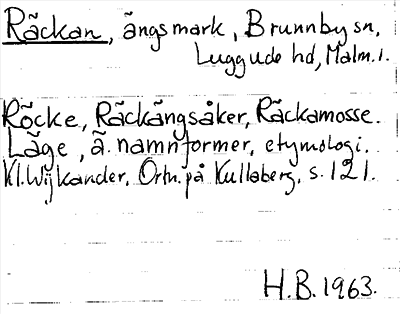 Räckan, ängsmark, Brunnby sn,
Luggude hd, Malm. l.
Röcke, Räckängsåker, Räckamosse.
Läge, ä. namnformer, etymologi.
Kl. Wijkander, Ortn. på Kullaberg, s. 121.
H.B. 1963.